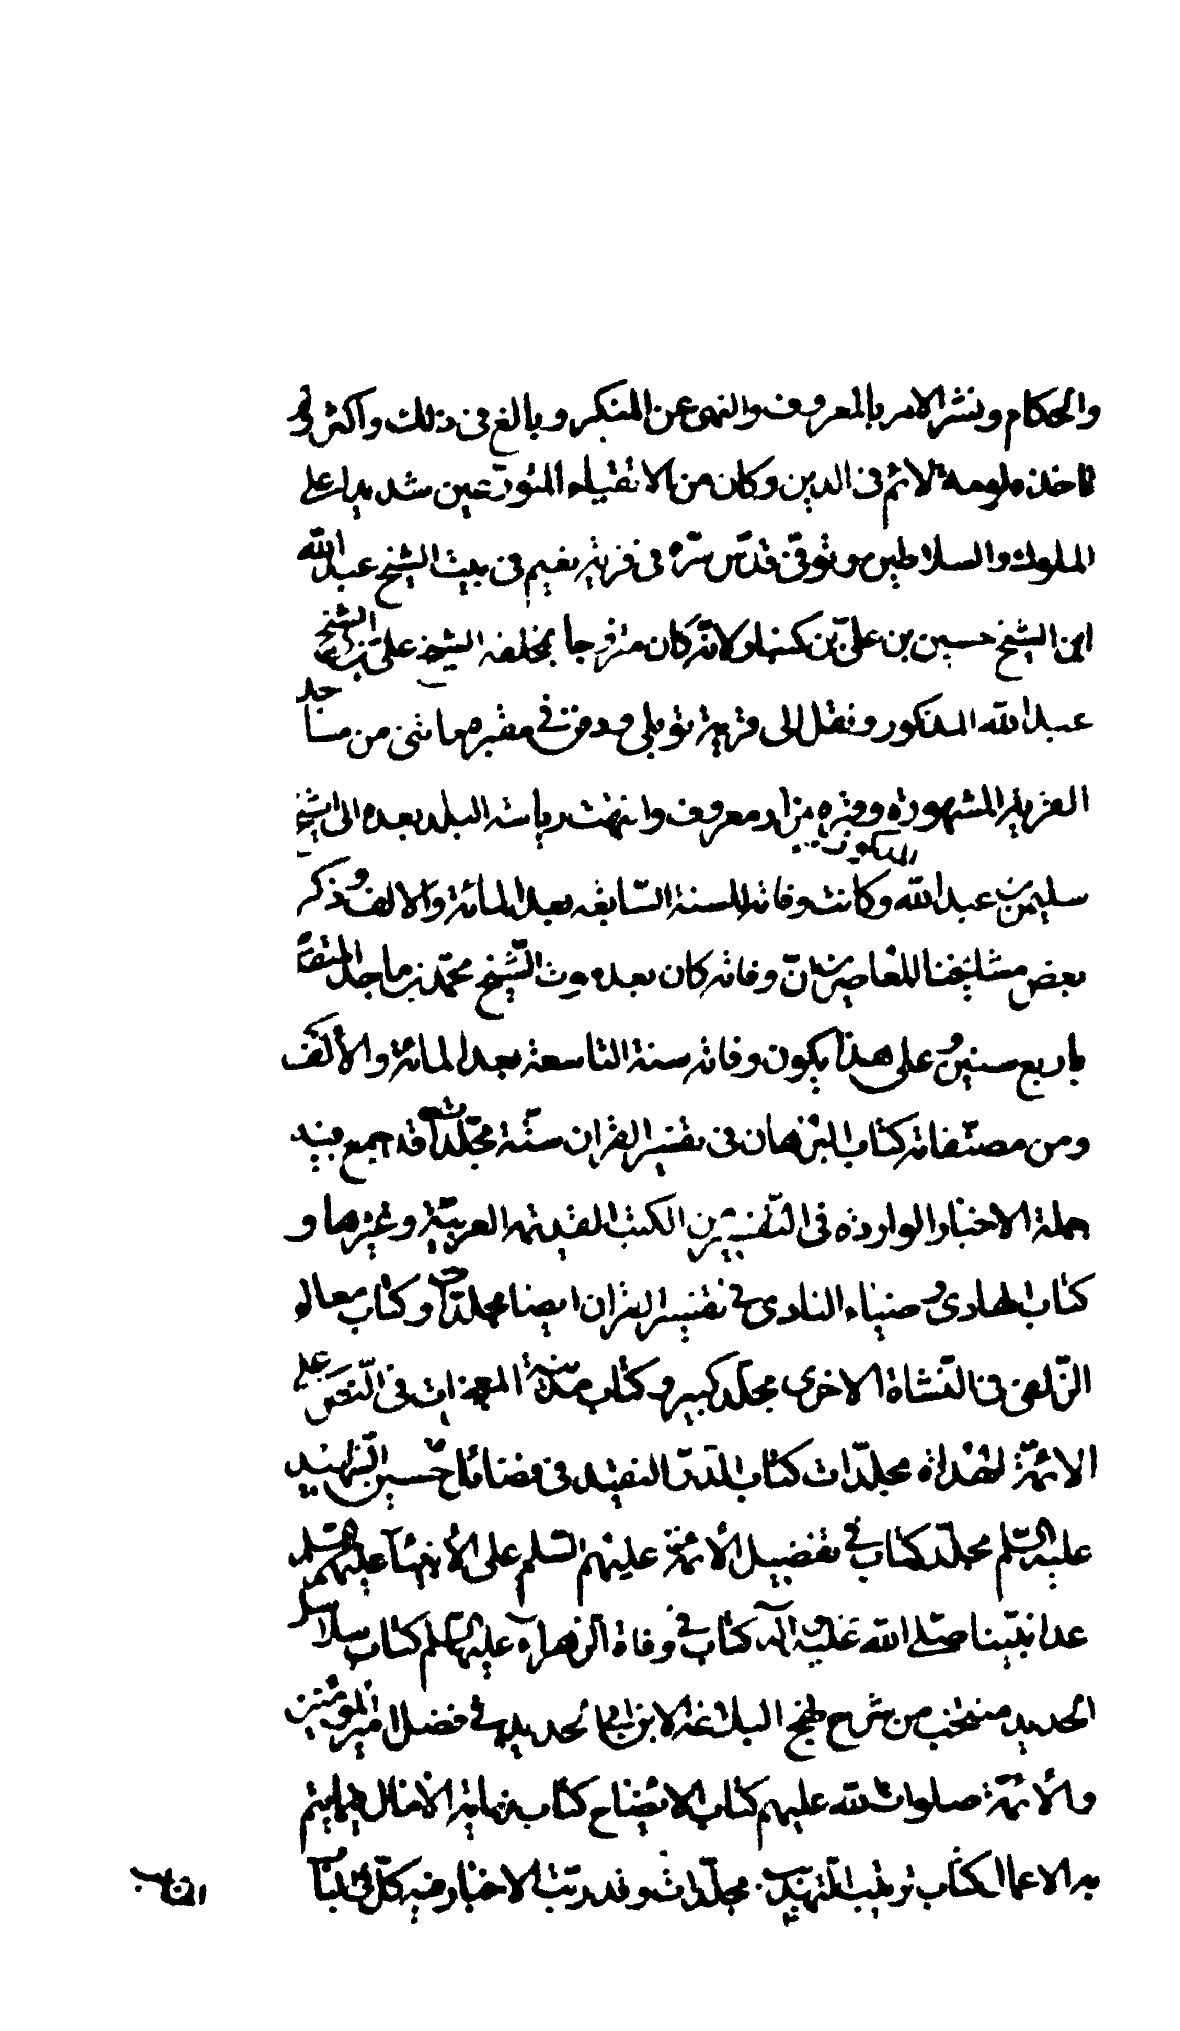 والحكام ونشر الامر بالمعروف والنهى عن المنكر وبالغ فى ذلك واكثر ولم
تاخذه لومة لائم فى الدين وكان من الاتقياء المتورعين شديدا على
الملوك والسلاطين وتوفى قدس سره فى قرية نعيم فى بيت الشيخ عبد الله
ابن الشيخ حسين بن على بن كنبار لانه كان متزوجا بمخلفه الشيخ على بن الشيخ
عبد الله المذكور ونقل الى قرية توبلى ودفن فى مقبرة ماثنى من مساجد
القرية المشهورة وقبره مزار معروف وانتهت رياسة البلد بعده الى الشيخ
سليمن بن عبد الله المذكور وكانت وفاته للسنة السابعة بعد المائة والالف وذكر
بعض مشايخنا المعاصرين ان وفاته كان بعد موت الشيخ محمد بن ماجد المتقدم
باربع سنين وعلى هذا يكون وفاته سنة التاسعة بعد المائة والألف
ومن مصنفاته كتاب البرهان فى تفسير القران ستة مجلدات قد جمع فيه
جملة الاخبار الواردة فى التفسير من الكتب القديمة العربية وغيرها و
كتاب الهادى وضياء النادى فى تفسير القران ايضا مجلدات وكتاب معالم
الزلفى فى النشاة الاخرى مجلد كبير وكتاب مدينة المعجزات فى النص على
الائمة الهداة مجلدات كتاب الدر النضيد فى فضائل الحسين الشهيد
عليه السلم مجلد كتاب فى تفضيل الأئمة عليهم السلم على الأنبياء عليهم السلم
عدا نبينا صلى الله عليه وآله كتاب فى وفاة الزهراء عليها السلم كتاب سلاسل
الحديد منتخب من شرح نهج البلاغة لابن ابى الحديد فى فضل امير المؤمنين
والأئمة صلوات الله عليهم كتاب الايضاح كتاب نهاية الأمال فيما يتم
به الاعمال كتاب ترتيب التهذيب مجلدات وقد رتب الاخبار فيه كل فى باب